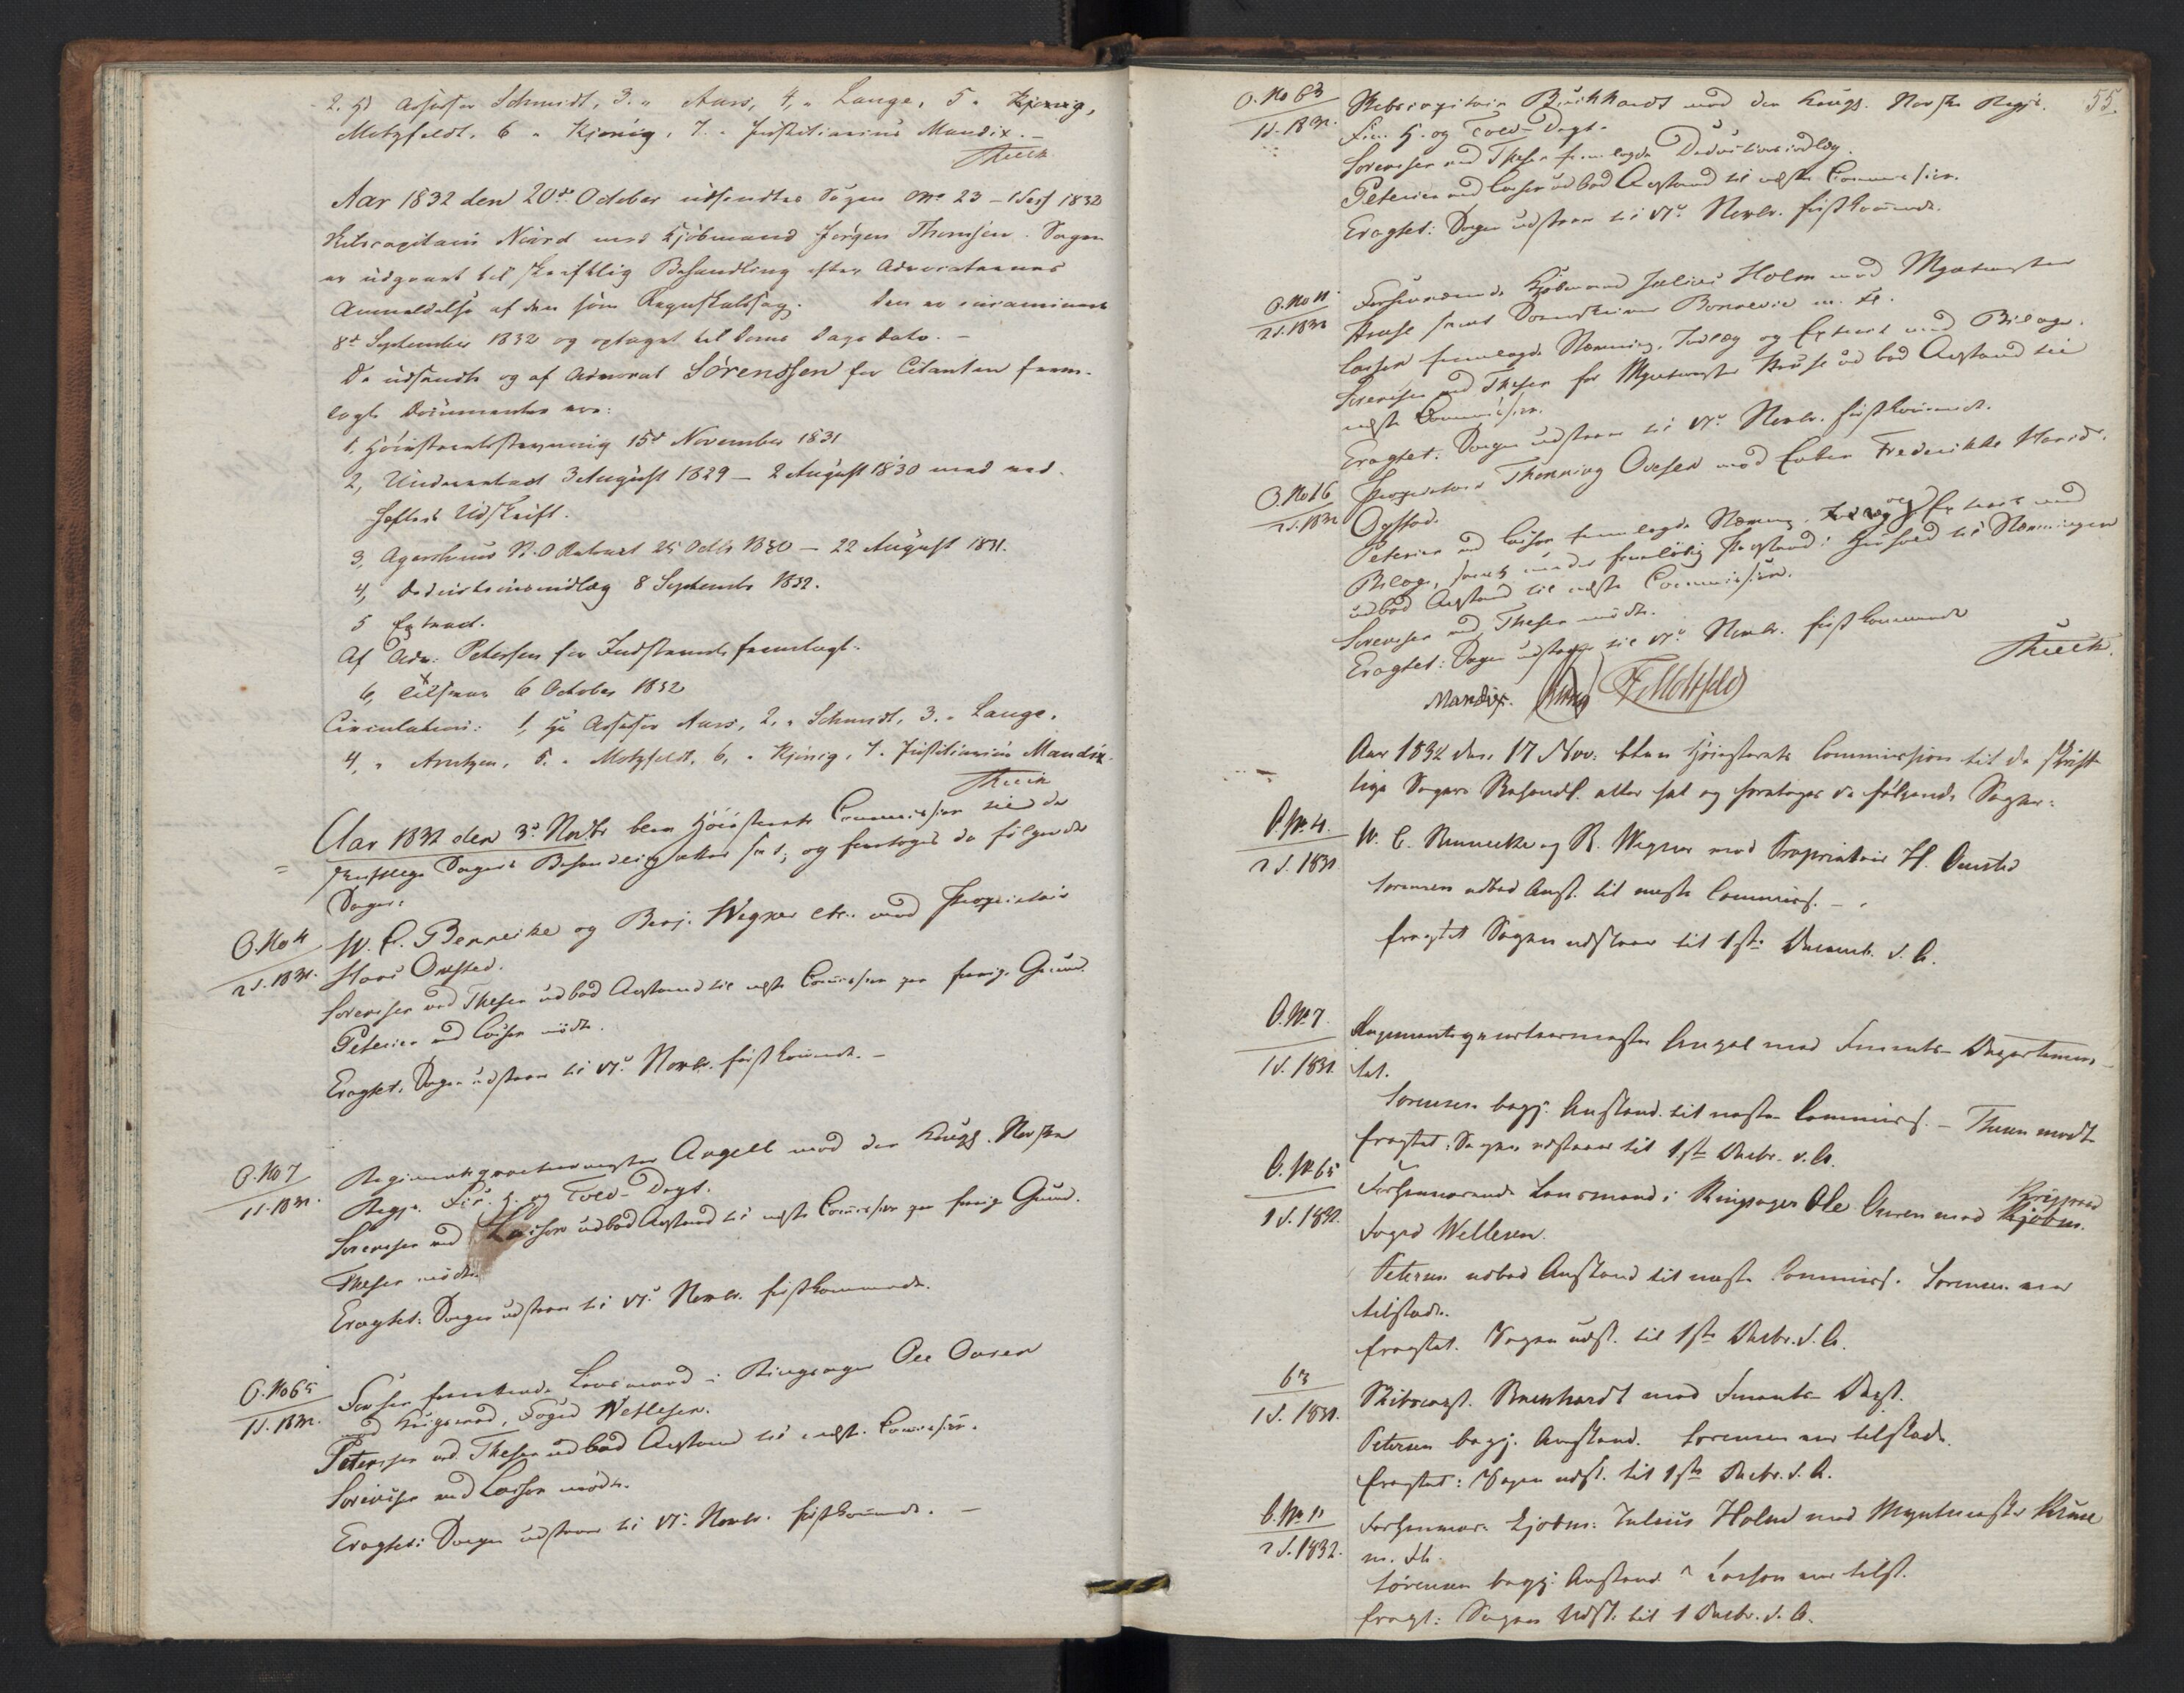 2, Hr Assessor Schmidt, 3. " Aars, 4, " Lange, 5 "
Motzfeldt, 6 " Kjønig, 7. " Justitiarius Mandix. –
Aar 1832 den 20de October udsendtes Sagen No 23 – 1 Sess 1832
Ritscapitain mod Kjøbmand Jørgen Thomsen. Sagen
er udgaaet til skriftlig Behandling efter Advocaternes
Anmeldelse af den som Regnskabssag. Den er incamineret
8de September 1832 og optaget til Doms Dags dato. –
De udsendte og af Advocat Sørenssen for Citanten frem-
lagte Documenter ere:
1, Høiesteretsstevning 15de November 1831
2, Underretsact 3 August 1829 – 2 August 1830 med ved-
heftet Udskrift.
3, Agershuus St. O Retsact 25 Octbr 1830 – 22 August 1831.
4, Deductionsindlæg 8 Septembr 1832.
5 Extract.
Af Adv: Petersen for Indstevnte fremlagt:
6, Tilsvar 6 October 1832
Circulation: 1, Hr Assessor Aars, 2, " Schmidt, 3. " Lange,
4, " Arntzen, 5. " Motzfeldt, 6, " Kjønig, 7. Justitiarius Mandix.
Aar 1832 den 3de Novbr blev Høiesterets Commission til de
skriftlige Sagers Behandling atter sat, og foretoges da følgende
Sager:
O. No 4
2 S. 1831.
W. C. Bennecke og Benj. Wegner etc. mod Proprietair
Hans Onsted.
Sorensen ved Thesen udbad Anstand til næste Commission paa forrige Grund.
Petersen ved Larsen mødte.
Eragtet: Sagen udstaaer til 17de Novbr. førstkommende. –
O. No 7
1 S. 1831.
Regimentsqvarteermester Angell mod den kongl. Norske
Regjs. Fin. H. og Told-Dept.
Sorensen ved Larsen udbad Anstand til næste Commission paa forrige Grund.
Thesen mødte.
Eragtet: Sagen udstaaer til 17de Novbr. førstkommende.
O. No 65
1 S. 1832.
Lensmand i Ringsager Ole Onsen
mod Krigsraad, Foged Wetlesen.
Petersen ved Thesen udbad Anstand til næste Commission.
Sorensen ved Larsen mødte.
Eragtet: Sagen udstaaer til 17de Novbr. førstkommende. –
55.
O. No 63
1 S. 1832.
Ritscapitain Burkhardt mod den kongl. Norske Regjs.
Fin. H. og Told-Dept.
Sorensen ved Thesen fremlagde Deductionsindlæg.
Petersen ved Larsen udbad Anstand til næste Commission.
Eragtet: Sagen udstaaer til 17de Novbr. førstkommende.
O. No 11
2 S. 1832
Forhenværende Kjøbmand Julius Holm mod Myntmester
Kruse samt Sorenskriver Bonnevie m. Fl.
Larsen fremlagde Stævning, Indlæg og Extract med Bilage.
Sorensen ved Thesen for Myntmester Kruse udbad Anstand til
næste Commission.
Eragtet: Sagen udstaaer til 17de Novbr. førstkommende.
O. No 16
2 S. 1832
Proprietair Thenning Ovesen mod Enken Frederikke Marie
Opstad.
Petersen ved Larsen fremlagde Stævning, og Extract med
Bilage, samt under foreløbig Paastand i Henhold til Stævningen
udbad Anstand til næste Commission.
Sorensen ved Thesen mødte.
Eragtet: Sagen udstaaer til 17de Novbr. førstkommende
Mandix. F Motzfeldt
Aar 1832 den 17 Nov. blev Høiesterets Commission til de skrift
lige Sagers Behandl. atter sat og foretoges de følgende Sager:
O. No 4.
2 S. 1831.
W. C. Bennecke og B. Wegner mod Proprietair H. Onsted
Sorensen udbad Anst. til næste Commiss. –
Eragtet Sagen udstaaer til 1ste Decemb. d. A.
O. No 7
1 S. 1831.
Regimentsqvarteermester Angel mod Finants-Departemen-
tet.
Sorensen begj. Anstand til næste Commiss. – Thesen mødte
Eragtet: Sagen udstaaer til 1ste Decbr. d. A.
O. No 65
1 S. 1832.
Forhenværende Lensmand i Ringsager Ole Onsen mod Krigsraad
Foged Wetlesen.
Petersen udbad Anstand til næste Commiss. Sorensen var
tilstæde.
Eragtet. Sagen udst. til 1ste Decbr. d. A.
63
1 S. 1832.
Ritscapt. Burkhardt mod Finants-Dept.
Petersen begj. Anstand. Sorensen var tilstæde.
Eragtet: Sagen udst. til 1ste Decbr. d. A.
O. No 11
2 S. 1832.
Forhenvær. Kjøbm: Julius Holm mod Myntmester Kruse
m. Fl.
Sørensen begj: Anstand Larsen var tilst.
Eragt: Sagen Udst. til 1 Decbr. d. A.